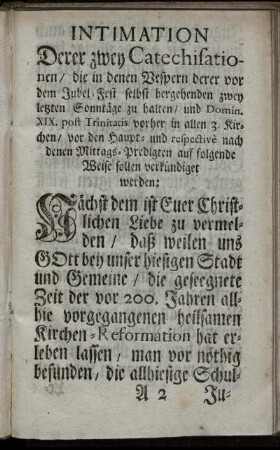 INTIMATION
Derer zwey Catechisatio-
nen/ die in denen Vespern derer vor
dem Jubel-Fest selbst hergehenden zwey
letzten Sonntäge zu halten/ und Domin.
XIX. post Trinitatis vorher in allen 3. Kir-
chen/ vor den Haupt- und respectivè nach
denen Mittags-Predigten auf folgende
Weise sollen verkündiget
werden:
Nächst dem ist Euer Christ-
lichen Liebe zu vermel-
den/ daß weilen uns
GOtt bey unser hiesigen Stadt
und Gemeine/ die geseegnete
Zeit der vor 200. Jahren all-
hie vorgegangenen heilsamen
Kirchen-Reformation hat er-
leben lassen/ man vor nöthig
befunden/ die allhiesige Schul-
A 2 Ju-